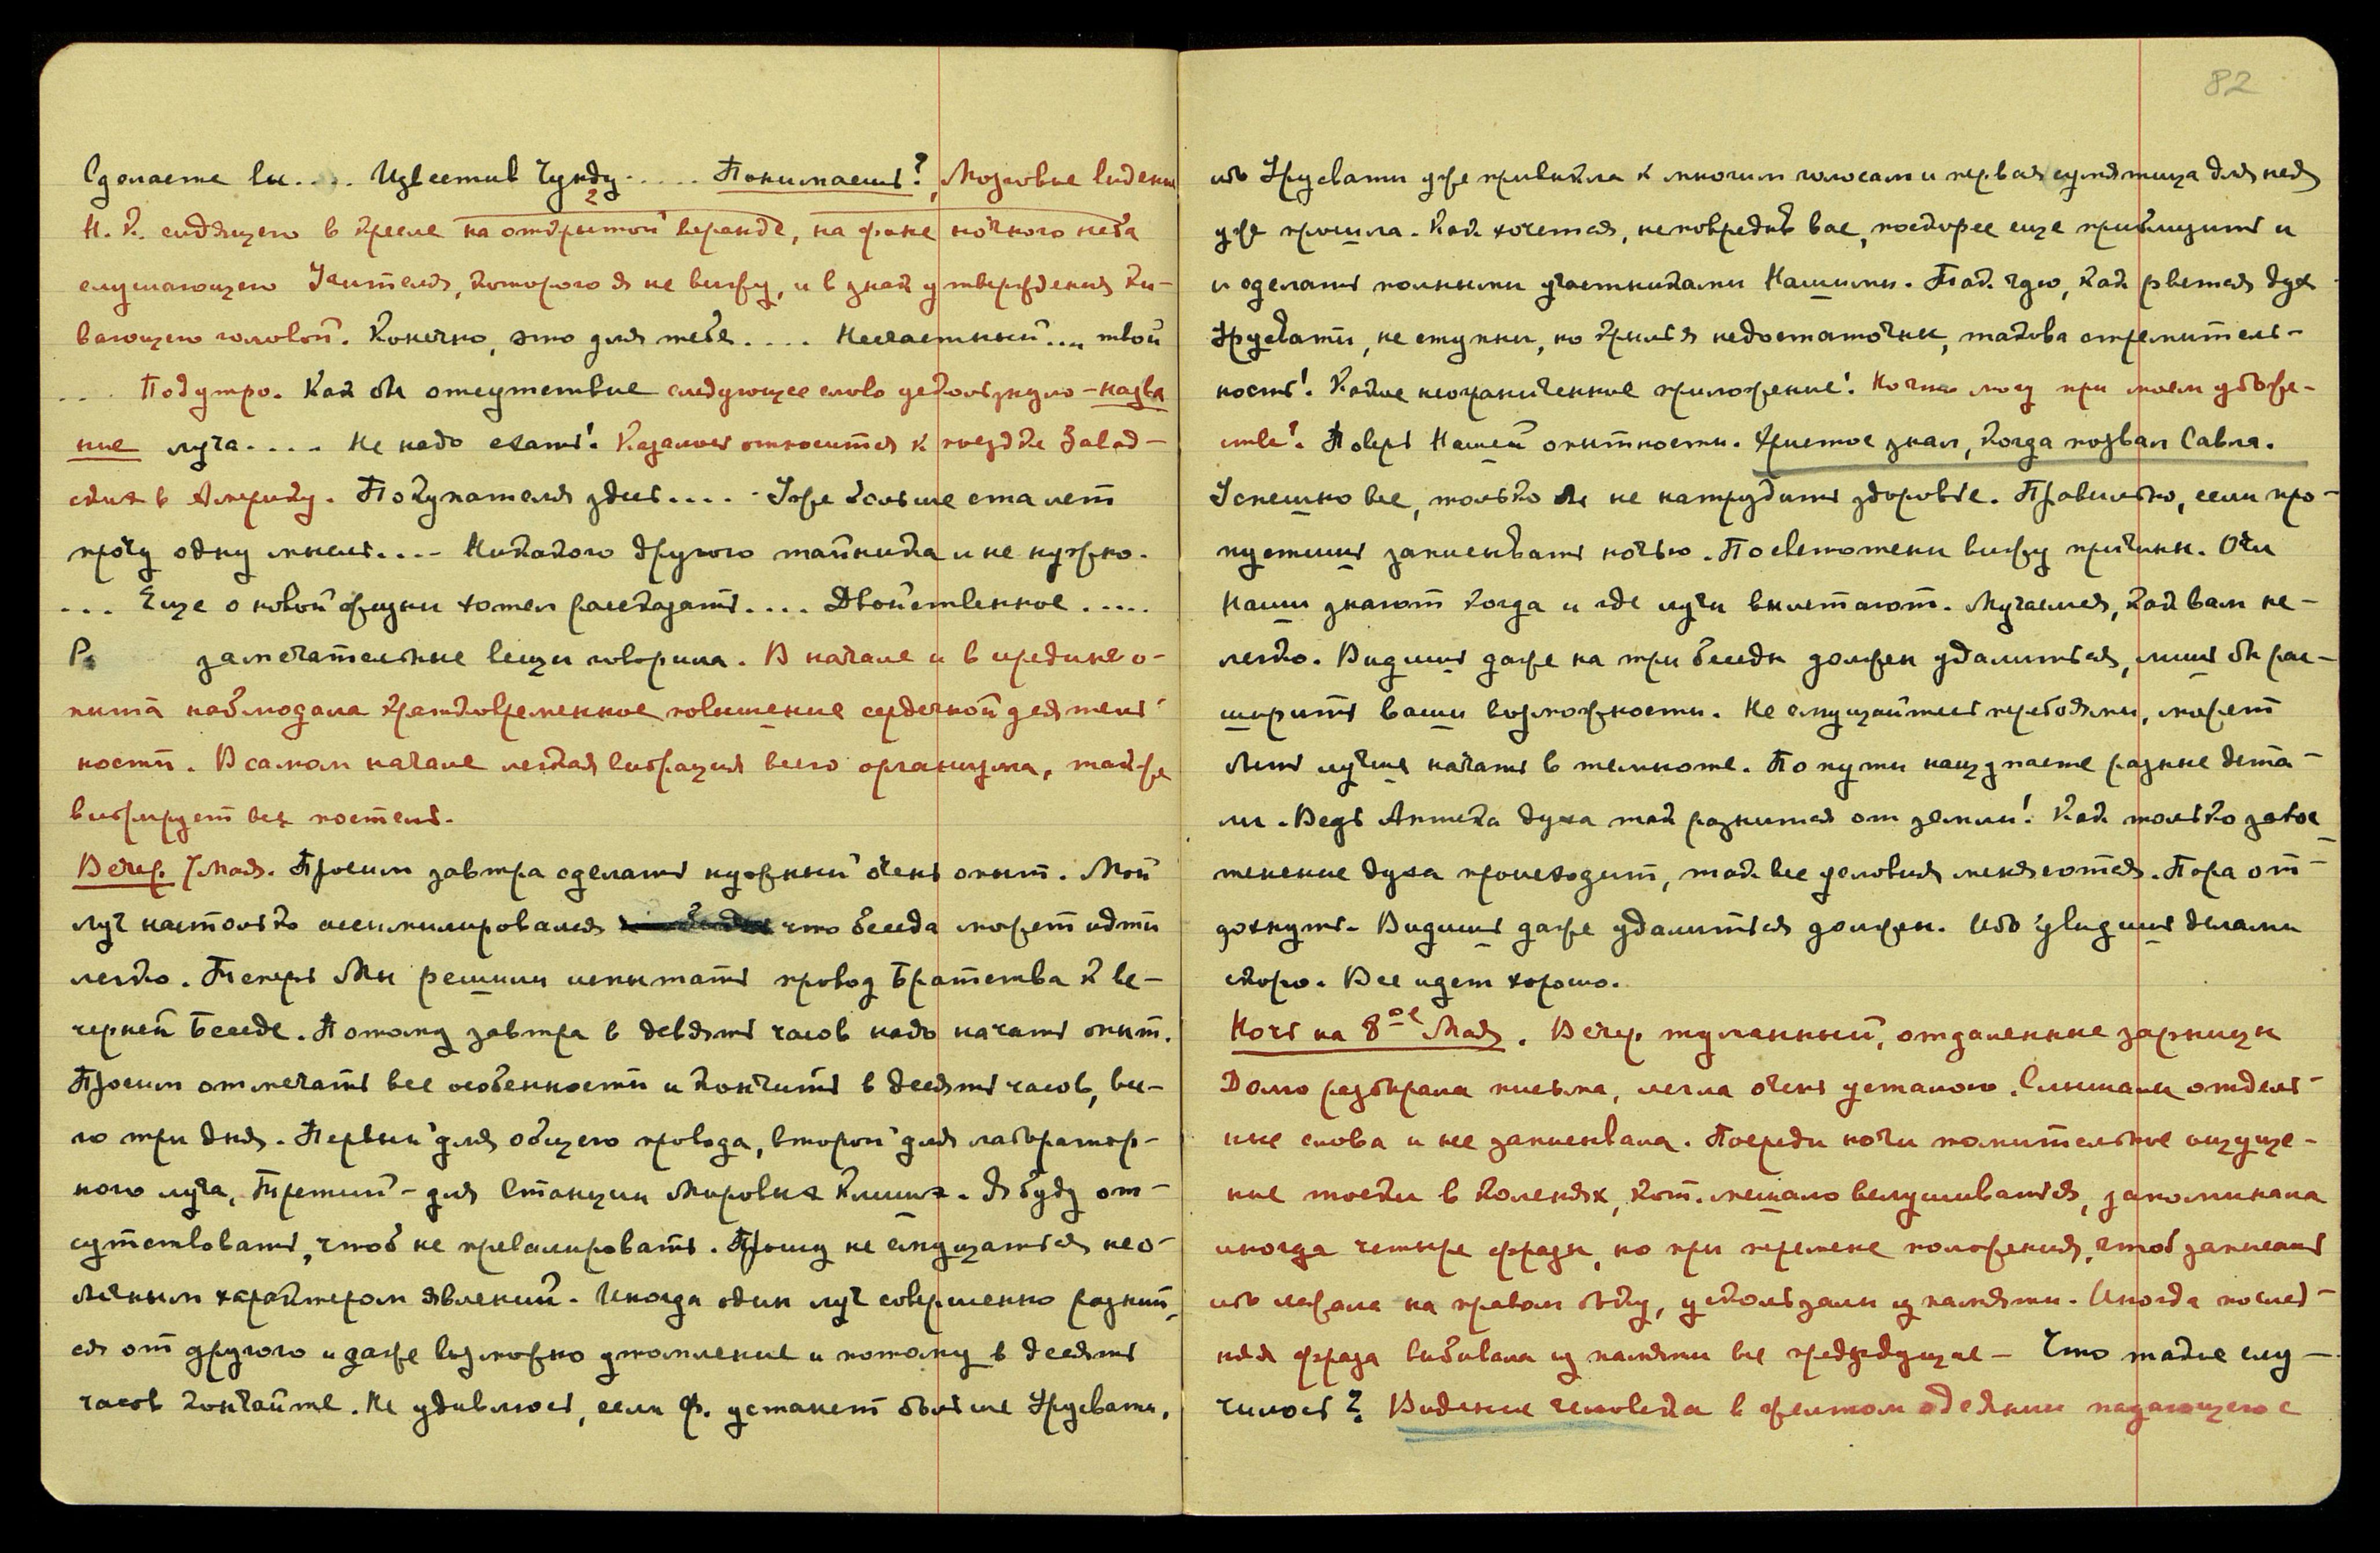 Сделаете вы.... Известив Чунду..... Понимаешь? Мозговые видения
2
Н. К. сидящего в кресле на открытой веранде, на фоне ночного неба
слушающего Учителя, которого я не вижу, и в знак утверждения ки-
вающего головой. Конечно, это для тебя.... Несчастный... твой
... Под утро. Как бы отсутствие следующее слово ускользнуло – назва
ние луча.... Не надо ехать! Казалось относится к поездке Завад-
ских в Америку. Покупателя здесь.... Уже больше ста лет
прочу одну мысль.... Никакого другого тайника и не нужно.
... Еще о новой физии хотел рассказать.... Двойственное.....
Р. замечательные вещи говорила. В начале и в средине о-
пыта наблюдала кратковременное повышение сердечной деятель-
ности. В самом начале легкая вибрация всего организма, также
вибрирует вся постель.
Вечер. 7 Мая. Просим завтра сделать нужный очень опыт. Мой
луч настолько ассимилировался что беседа может идти
легко. Теперь Мы решили испытать провод Братства к ве-
черней Беседе. Потому завтра в девять часов надо начать опыт.
Просим отмечать все особенности и кончить в десять часов, вс-
го три дня. Первый для общего провода, второй для лаборатор-
ного луча, Третий – для Станции Мировых Клише. Я буду от-
сутствовать, чтоб не превалировать. Прошу не смущаться нео-
бычным характером явлений. Иногда один луч совершенно разнит-
ся от другого и даже возможно утомление и потому в десять
часов кончайте. Не удивлюсь, если Ф. устанет больше Урусвати,
82
ибо Урусвати уже привыкла к многим голосам и первая сумятица для нея
уже прошла. Как хочется, неповредив вас, поскорее еще приблизить и
и сделать полными участниками Нашими. Так чую, как рвется дух
Урусвати, не ступни, но крылья недостаточны, такова стремитель-
ность! Какое неограниченное приложение! Ночью могу при моем убоже-
стве? Поверь Нашей опытности. Христос знал, когда позвал Савла.
Успешно все, только бы не натрудить здоровье. Правильно, если про-
пустишь записывать ночью. По светотени вижу причины. Очи
Наши знают когда и где лучи вылетают. Мучаемся, как вам не-
легко. Видишь даже на три беседы должен удалиться, лишь бы рас-
ширить ваши возможности. Не смущайтесь перебоями, может
быть лучше начать в темноте. По пути нащупаете разные дета-
ли. Ведь Аптека духа так разнится от земли! Как только завос-
тенение духа происходит, так все условия меняются. Пора от-
дохнуть. Видишь даже удалиться должен. Ибо увидишь делами
скоро. Все идет хорошо.
Ночь на 8ое Мая. Вечер туманный, отдаленные зарницы
Долго разбирала письма, легла очень усталою. Слышала отдель-
ные слова и не записывала. Посреди ночи томительное ощуще-
ние тоски в коленях, кот. мешало вслушиваться, запоминала
иногда четыре фразы, но при перемене положения, чтоб записать
ибо лежала на правом боку, ускользали из памяти. Иногда послед-
няя фраза выбивала из памяти все предъидущие – Что такое слу-
чилось? Видение человека в желтом одеянии падающего с